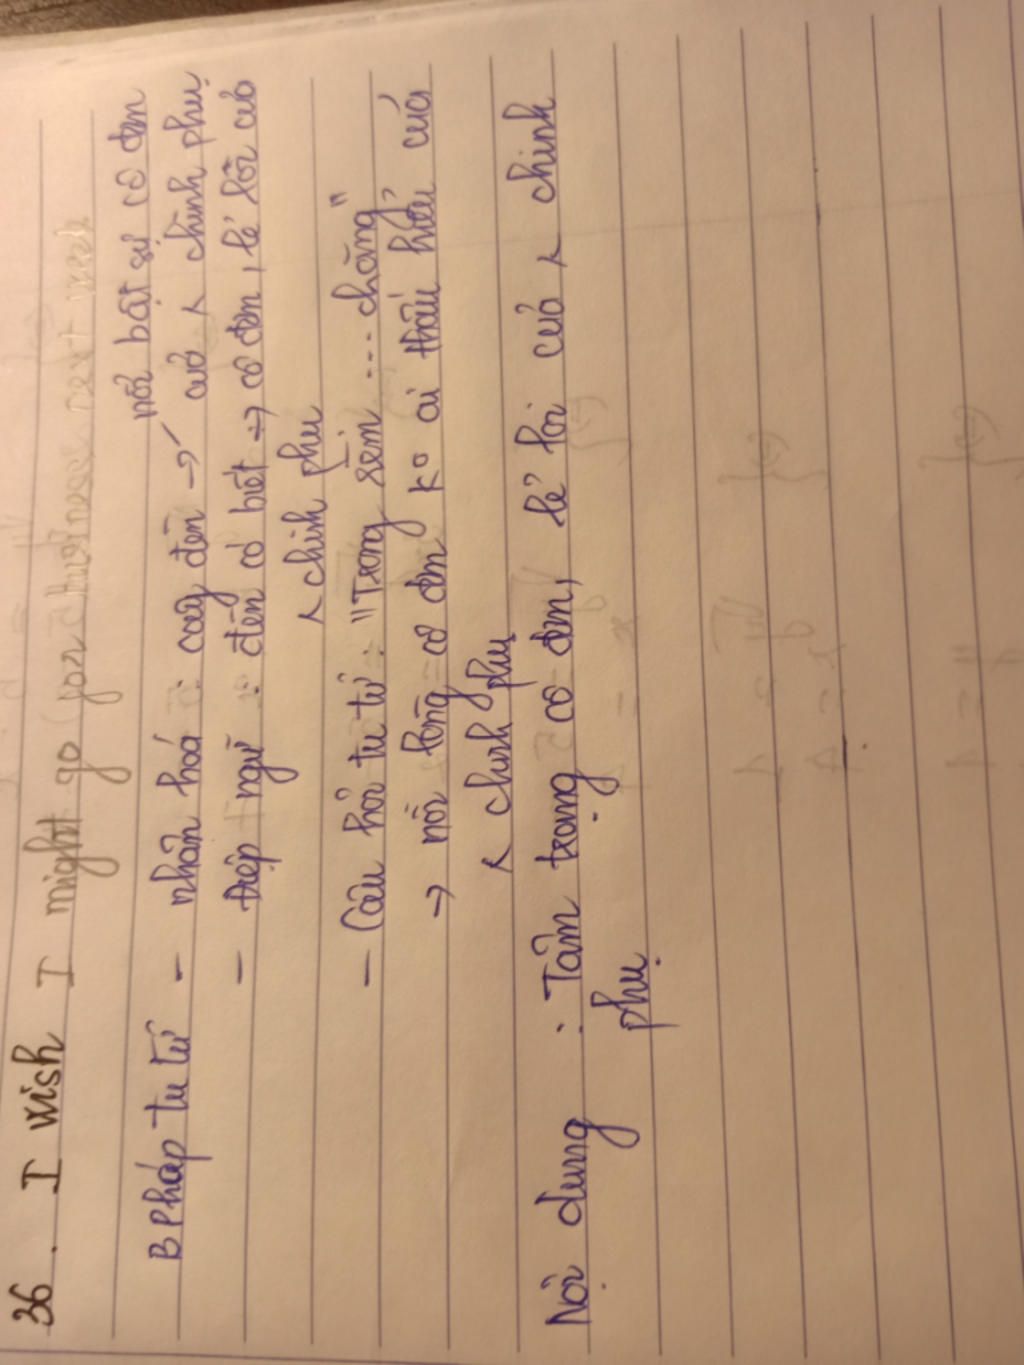 36. I wish I might go for chuẩness next week
nổi bật sự cô đơn
B Pháp tu từ - nhân hoá : cây đèn → của ʎ chinh phụ
- Điệp ngữ : đèn có biết → cô đơn, lẻ lôi của
ʎ chinh phu
- Câu hỏi tu từ : "Trong rèm ... chăng"
→ nỗi lòng cô đơn ko ai thấu hiểu của
ʎ chinh phụ
Nội dung : Tâm trạng cô đơn, lẻ loi của ʎ chinh
phụ